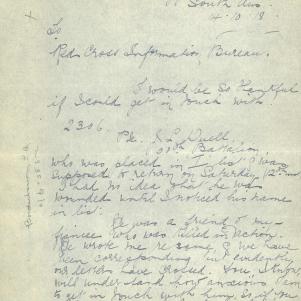 South Aus.
4.10.18
To
Red Cross Information Bureau.
I would be so thankful
if I could get in touch with
2306.
Pte. Duell
Battalion
who was placed in list & was
supposed to return on Saturday 12th inst
I had no idea that he was
wounded until I noticed his name
in list.
He was a friend of my
fiancee who was killed in action.
He wrote me re same & we have
been corresponding, but evidently
our letters have crossed. You, I know,
will understand how anxious I am
to get in touch with him, so if you